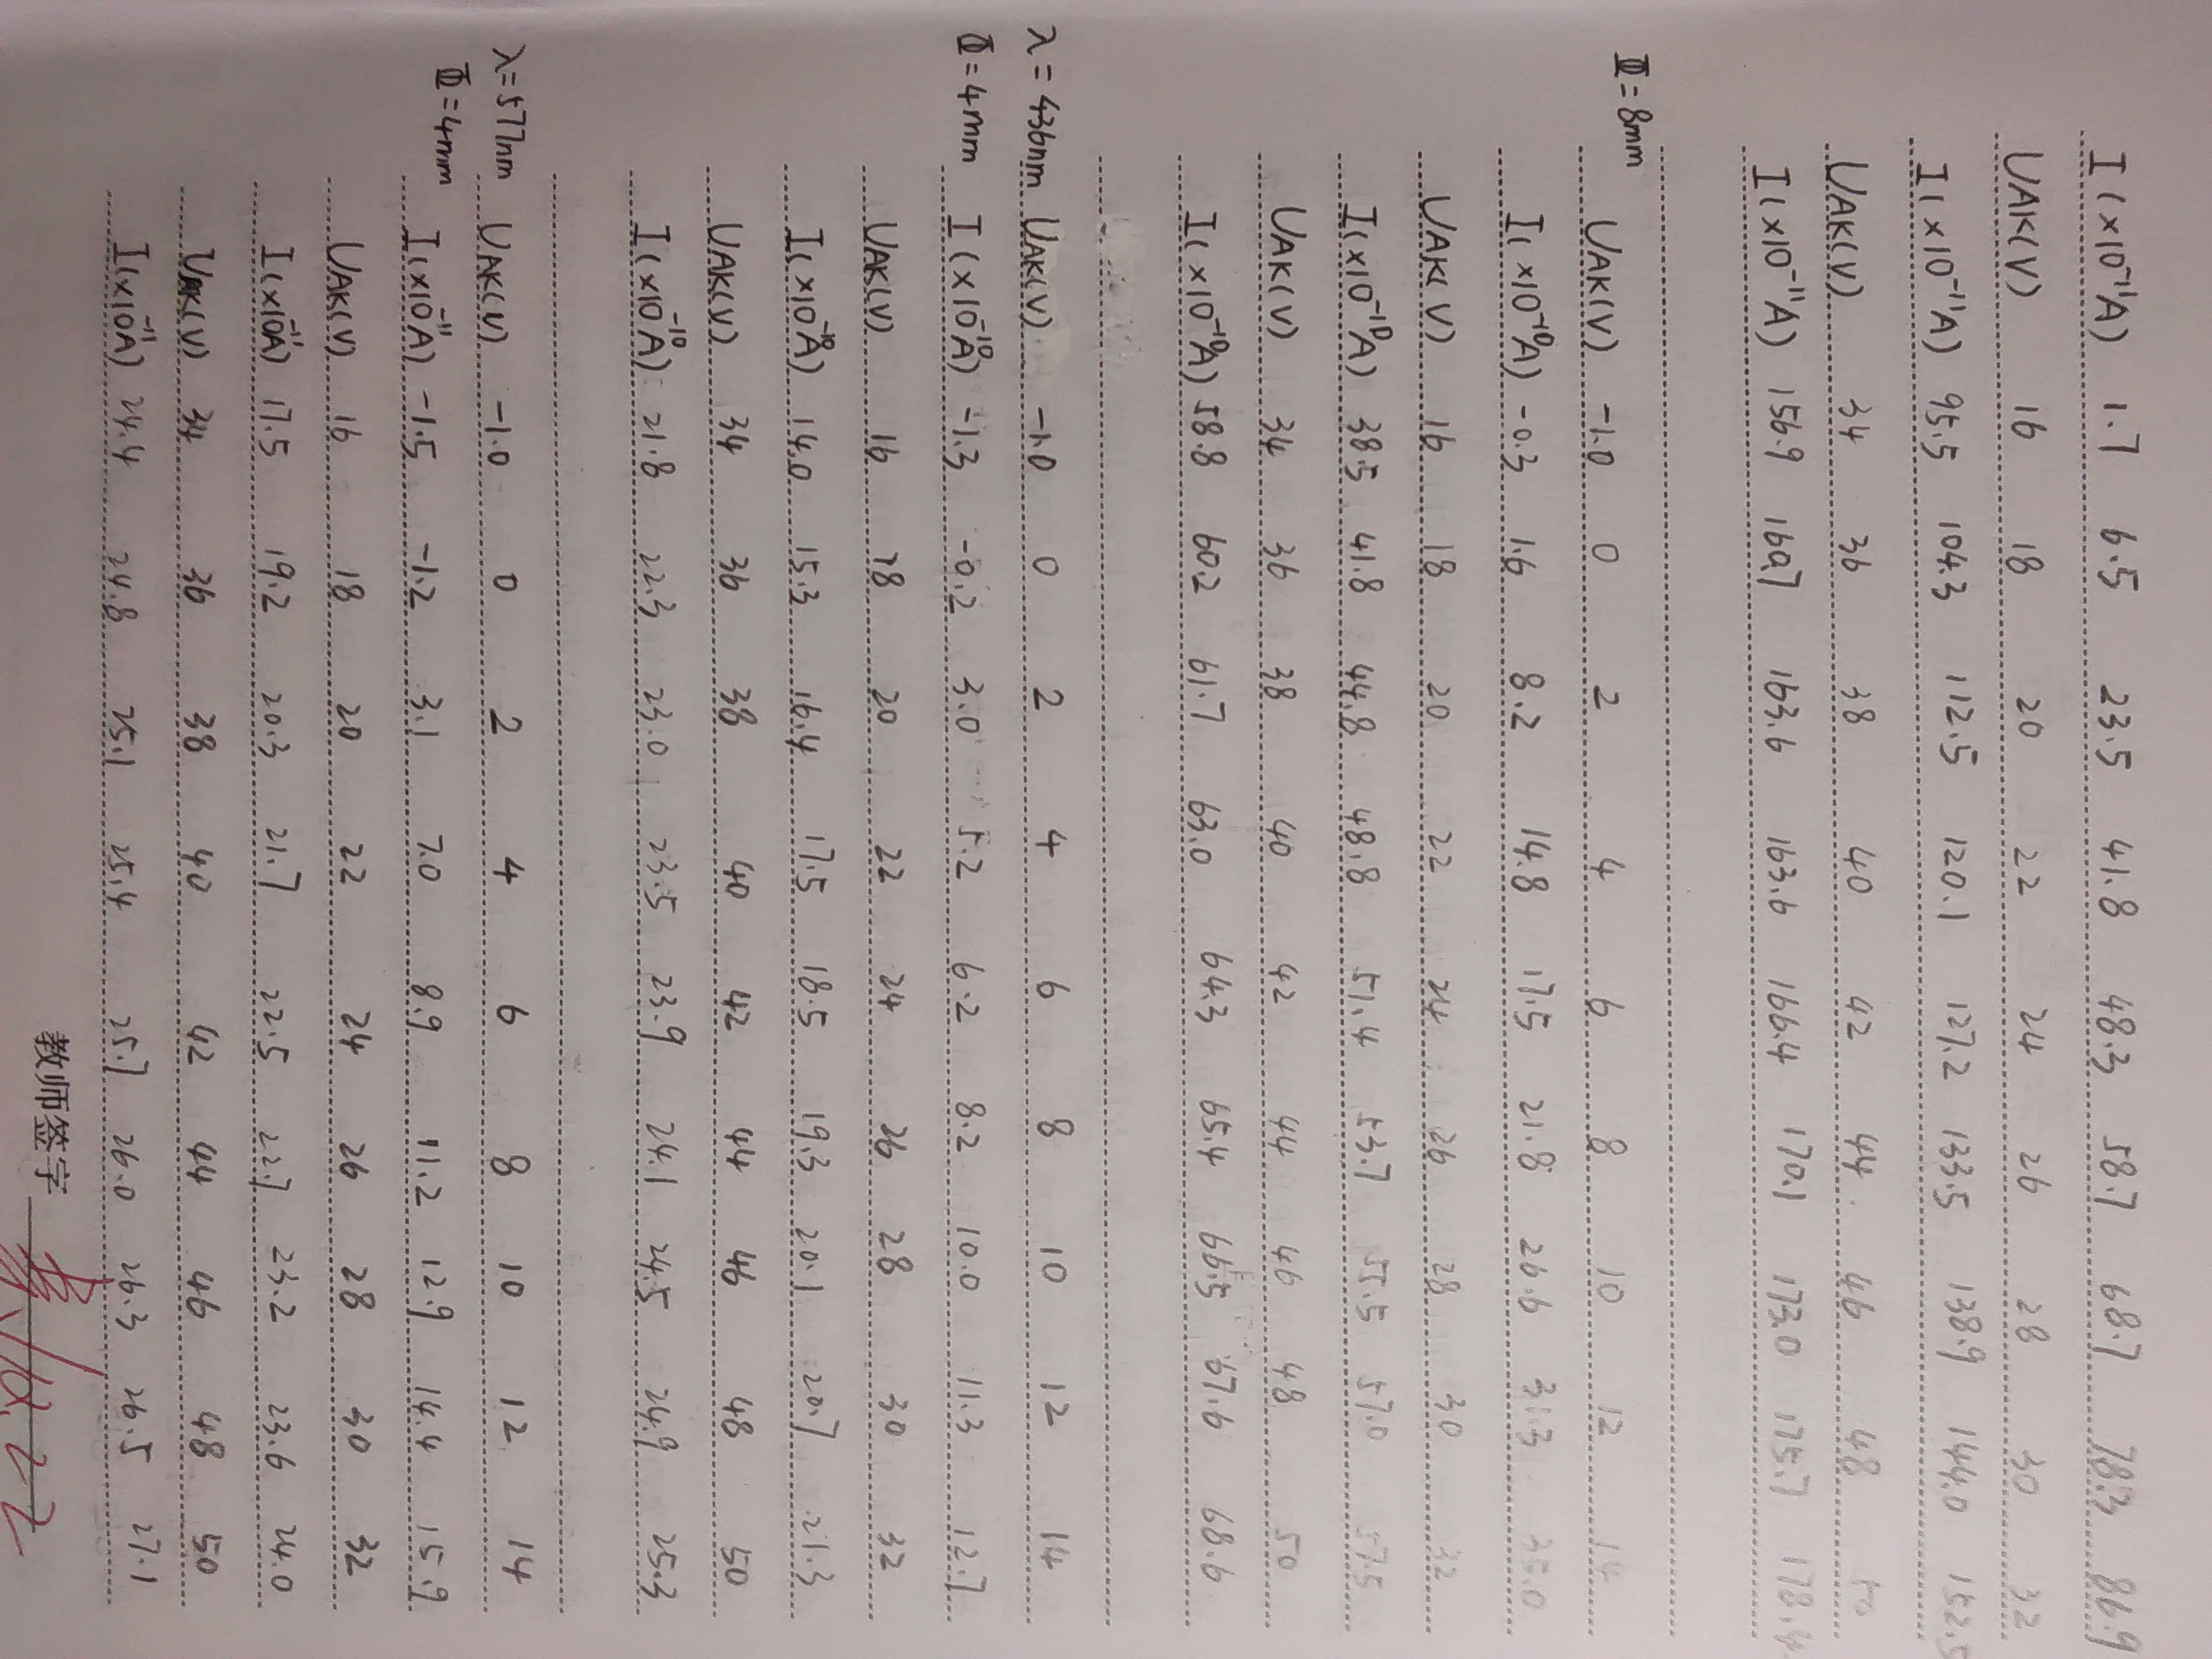 I(×10⁻¹¹A) 1.7 6.5 23.5 41.8 48.3 58.7 68.7 78.3 86.9
UAK(V) 16 18 20 22 24 26 28 30 32
I(×10⁻¹¹A) 95.5 104.3 112.5 120.1 127.2 133.5 138.9 144.0 152.5
UAK(V) 34 36 38 40 42 44 46 48 50
I(×10⁻¹¹A) 156.9 160.7 163.6 163.6 166.4 170.1 173.0 175.7 178.4
Φ=8mm UAK(V) -1.0 0 2 4 6 8 10 12 14
I(×10⁻¹⁰A) -0.3 1.6 8.2 14.8 17.5 21.8 26.6 31.3 35.0
UAK(V) 16 18 20 22 24 26 28 30 32
I(×10⁻¹⁰A) 38.5 41.8 44.8 48.8 51.4 53.7 55.5 57.0 57.5
UAK(V) 34 36 38 40 42 44 46 48 50
I(×10⁻¹⁰A) 58.8 60.2 61.7 63.0 64.3 65.4 66.5 67.6 68.6
λ=436nm UAK(V) -1.0 0 2 4 6 8 10 12 14
Φ=4mm I(×10⁻¹⁰A) -1.3 -0.2 3.0 5.2 6.2 8.2 10.0 11.3 12.7
UAK(V) 16 18 20 22 24 26 28 30 32
I(×10⁻¹⁰A) 14.0 15.3 16.4 17.5 18.5 19.3 20.1 20.7 21.3
UAK(V) 34 36 38 40 42 44 46 48 50
I(×10⁻¹⁰A) 21.8 22.3 23.0 23.5 23.9 24.1 24.5 24.9 25.3
λ=577nm UAK(V) -1.0 0 2 4 6 8 10 12 14
Φ=4mm I(×10⁻¹¹A) -1.5 -1.2 3.1 7.0 8.9 11.2 12.9 14.4 15.9
UAK(V) 16 18 20 22 24 26 28 30 32
I(×10⁻¹¹A) 17.5 19.2 20.3 21.7 22.5 22.7 23.2 23.6 24.0
UAK(V) 34 36 38 40 42 44 46 48 50
I(×10⁻¹¹A) 24.4 24.8 25.1 25.4 25.7 26.0 26.3 26.5 27.1
教师签字